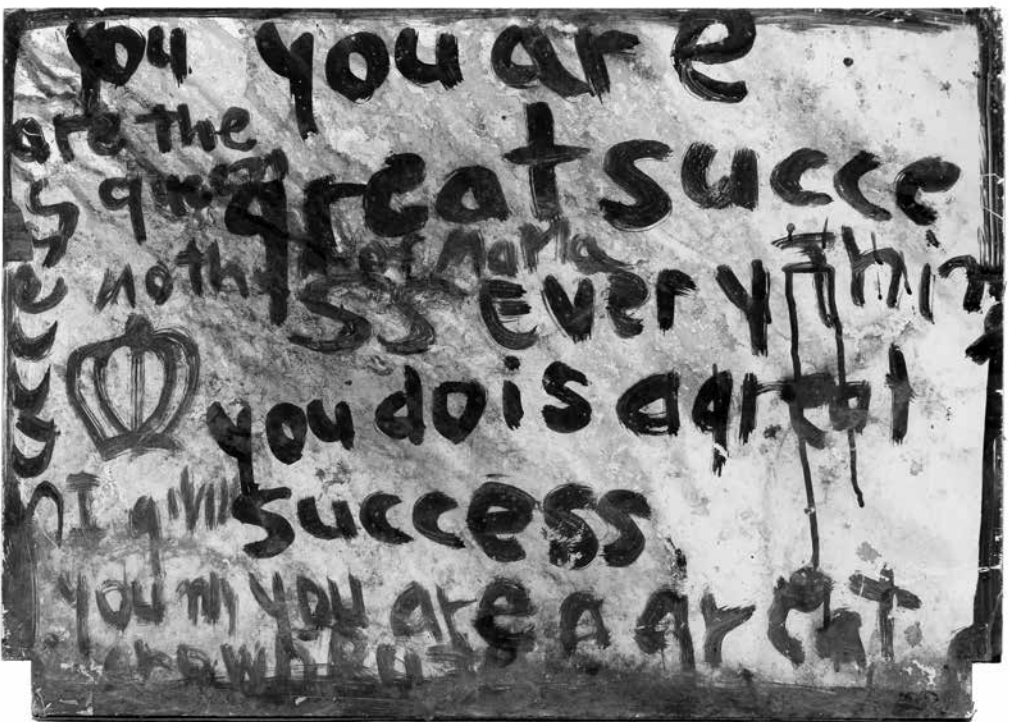 you you are
are the
great succe
noth of Maria
ss Everything
you do is a great
success
I give
you my you are a great